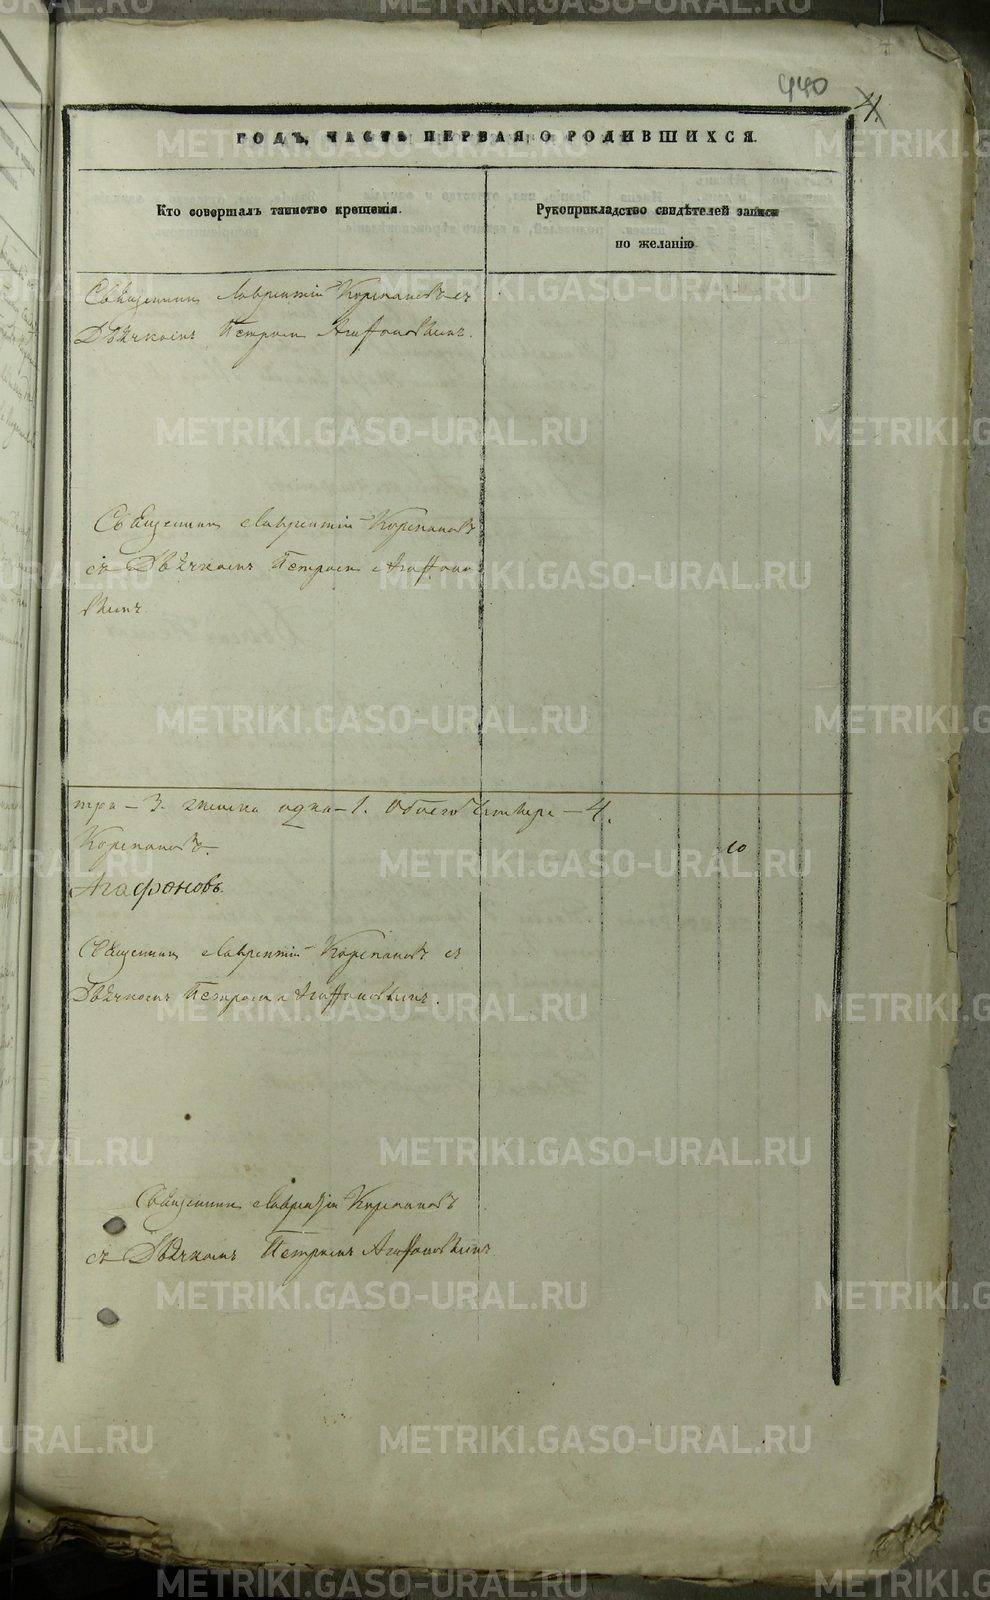 440
4.
ГОДЪ, ЧАСТЬ ПЕРВАЯ, О РОДИВШИХСЯ.
Кто совершалъ таинство крещенія.
Рукоприкладство свидѣтелей записи
по желанію.
Священникъ Лаврентій Корепановъ съ
Дьячкомъ Петромъ Агафоновымъ.
Священникъ Лаврентій Корепановъ
съ Дьячкомъ Петромъ Агафоно
вымъ.
три – 3. женска одна – 1. Обоего четыре – 4.
Корепановъ.
10
Агафоновъ.
Священникъ Лаврентій Корепановъ съ
Дьячкомъ Петромъ Агафоновымъ.
Священникъ Лаврентій Корепановъ
съ Дьячкомъ Петромъ Агафоновымъ
METRIKI.GASO-URAL.RU